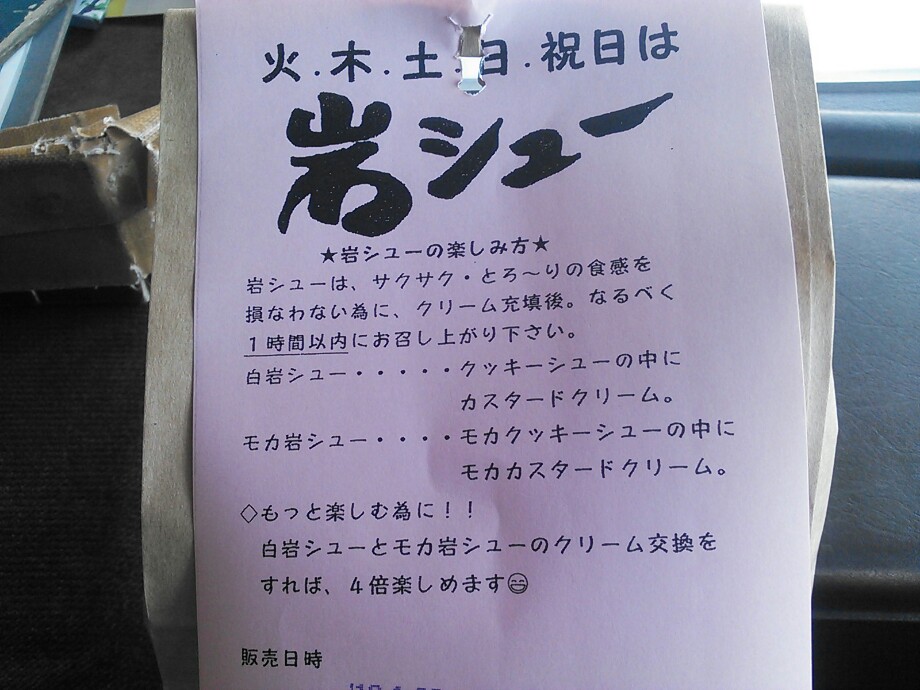 火.木.土.日.祝日は
岩シュー
★岩シューの楽しみ方★
岩シューは、サクサク・とろ～りの食感を
損なわない為に、クリーム充填後。なるべく
1時間以内にお召し上がり下さい。
白岩シュー・・・・・クッキーシューの中に
カスタードクリーム。
モカ岩シュー・・・・モカクッキーシューの中に
モカカスタードクリーム。
◇もっと楽しむ為に！！
白岩シューとモカ岩シューのクリーム交換を
すれば、4倍楽しめます😄
販売日時